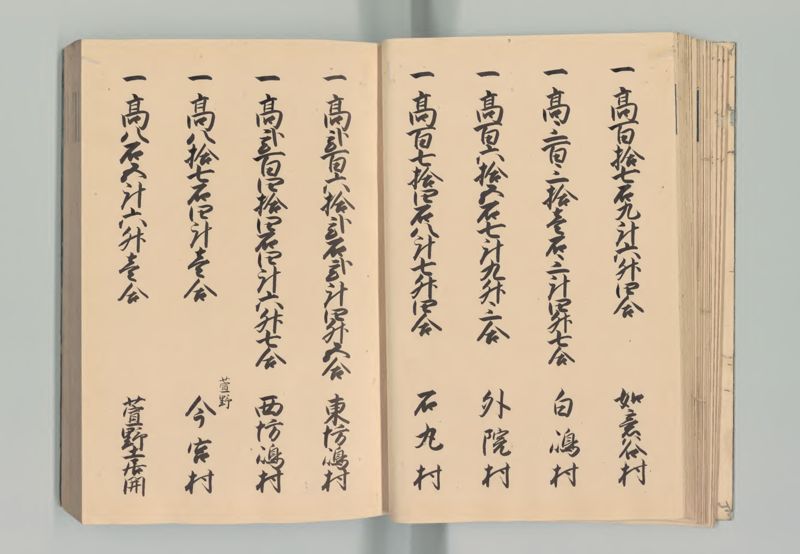 一 高百拾七石九斗六升四合 如意谷村
一 高三百三拾壱石三斗四升七合 白嶋村
一 高百六拾五石七斗九升三合 外院村
一 高百七拾四石八斗七升四合 石丸村
一 高弐百六拾弐石弐斗四升五合 東坊嶋村
一 高弐百四拾四石四斗六升七合 西坊嶋村
一 高八拾七石四斗壱合 萱野 今宮村
一 高八石五斗六升壱合 萱野土居開